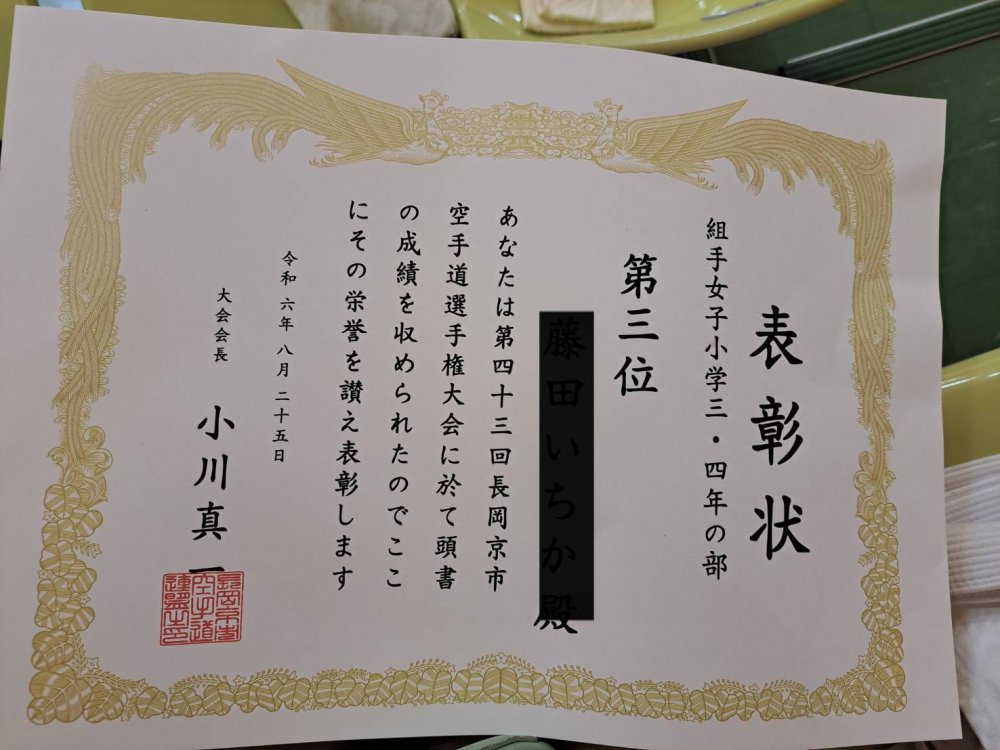 表彰状
組手女子小学三・四年の部
第三位
殿
あなたは第四十三回長岡京市
空手道選手権大会に於て頭書
の成績を収められたのでここ
にその栄誉を讃え表彰します
令和六年八月二十五日
大会会長 小川真一